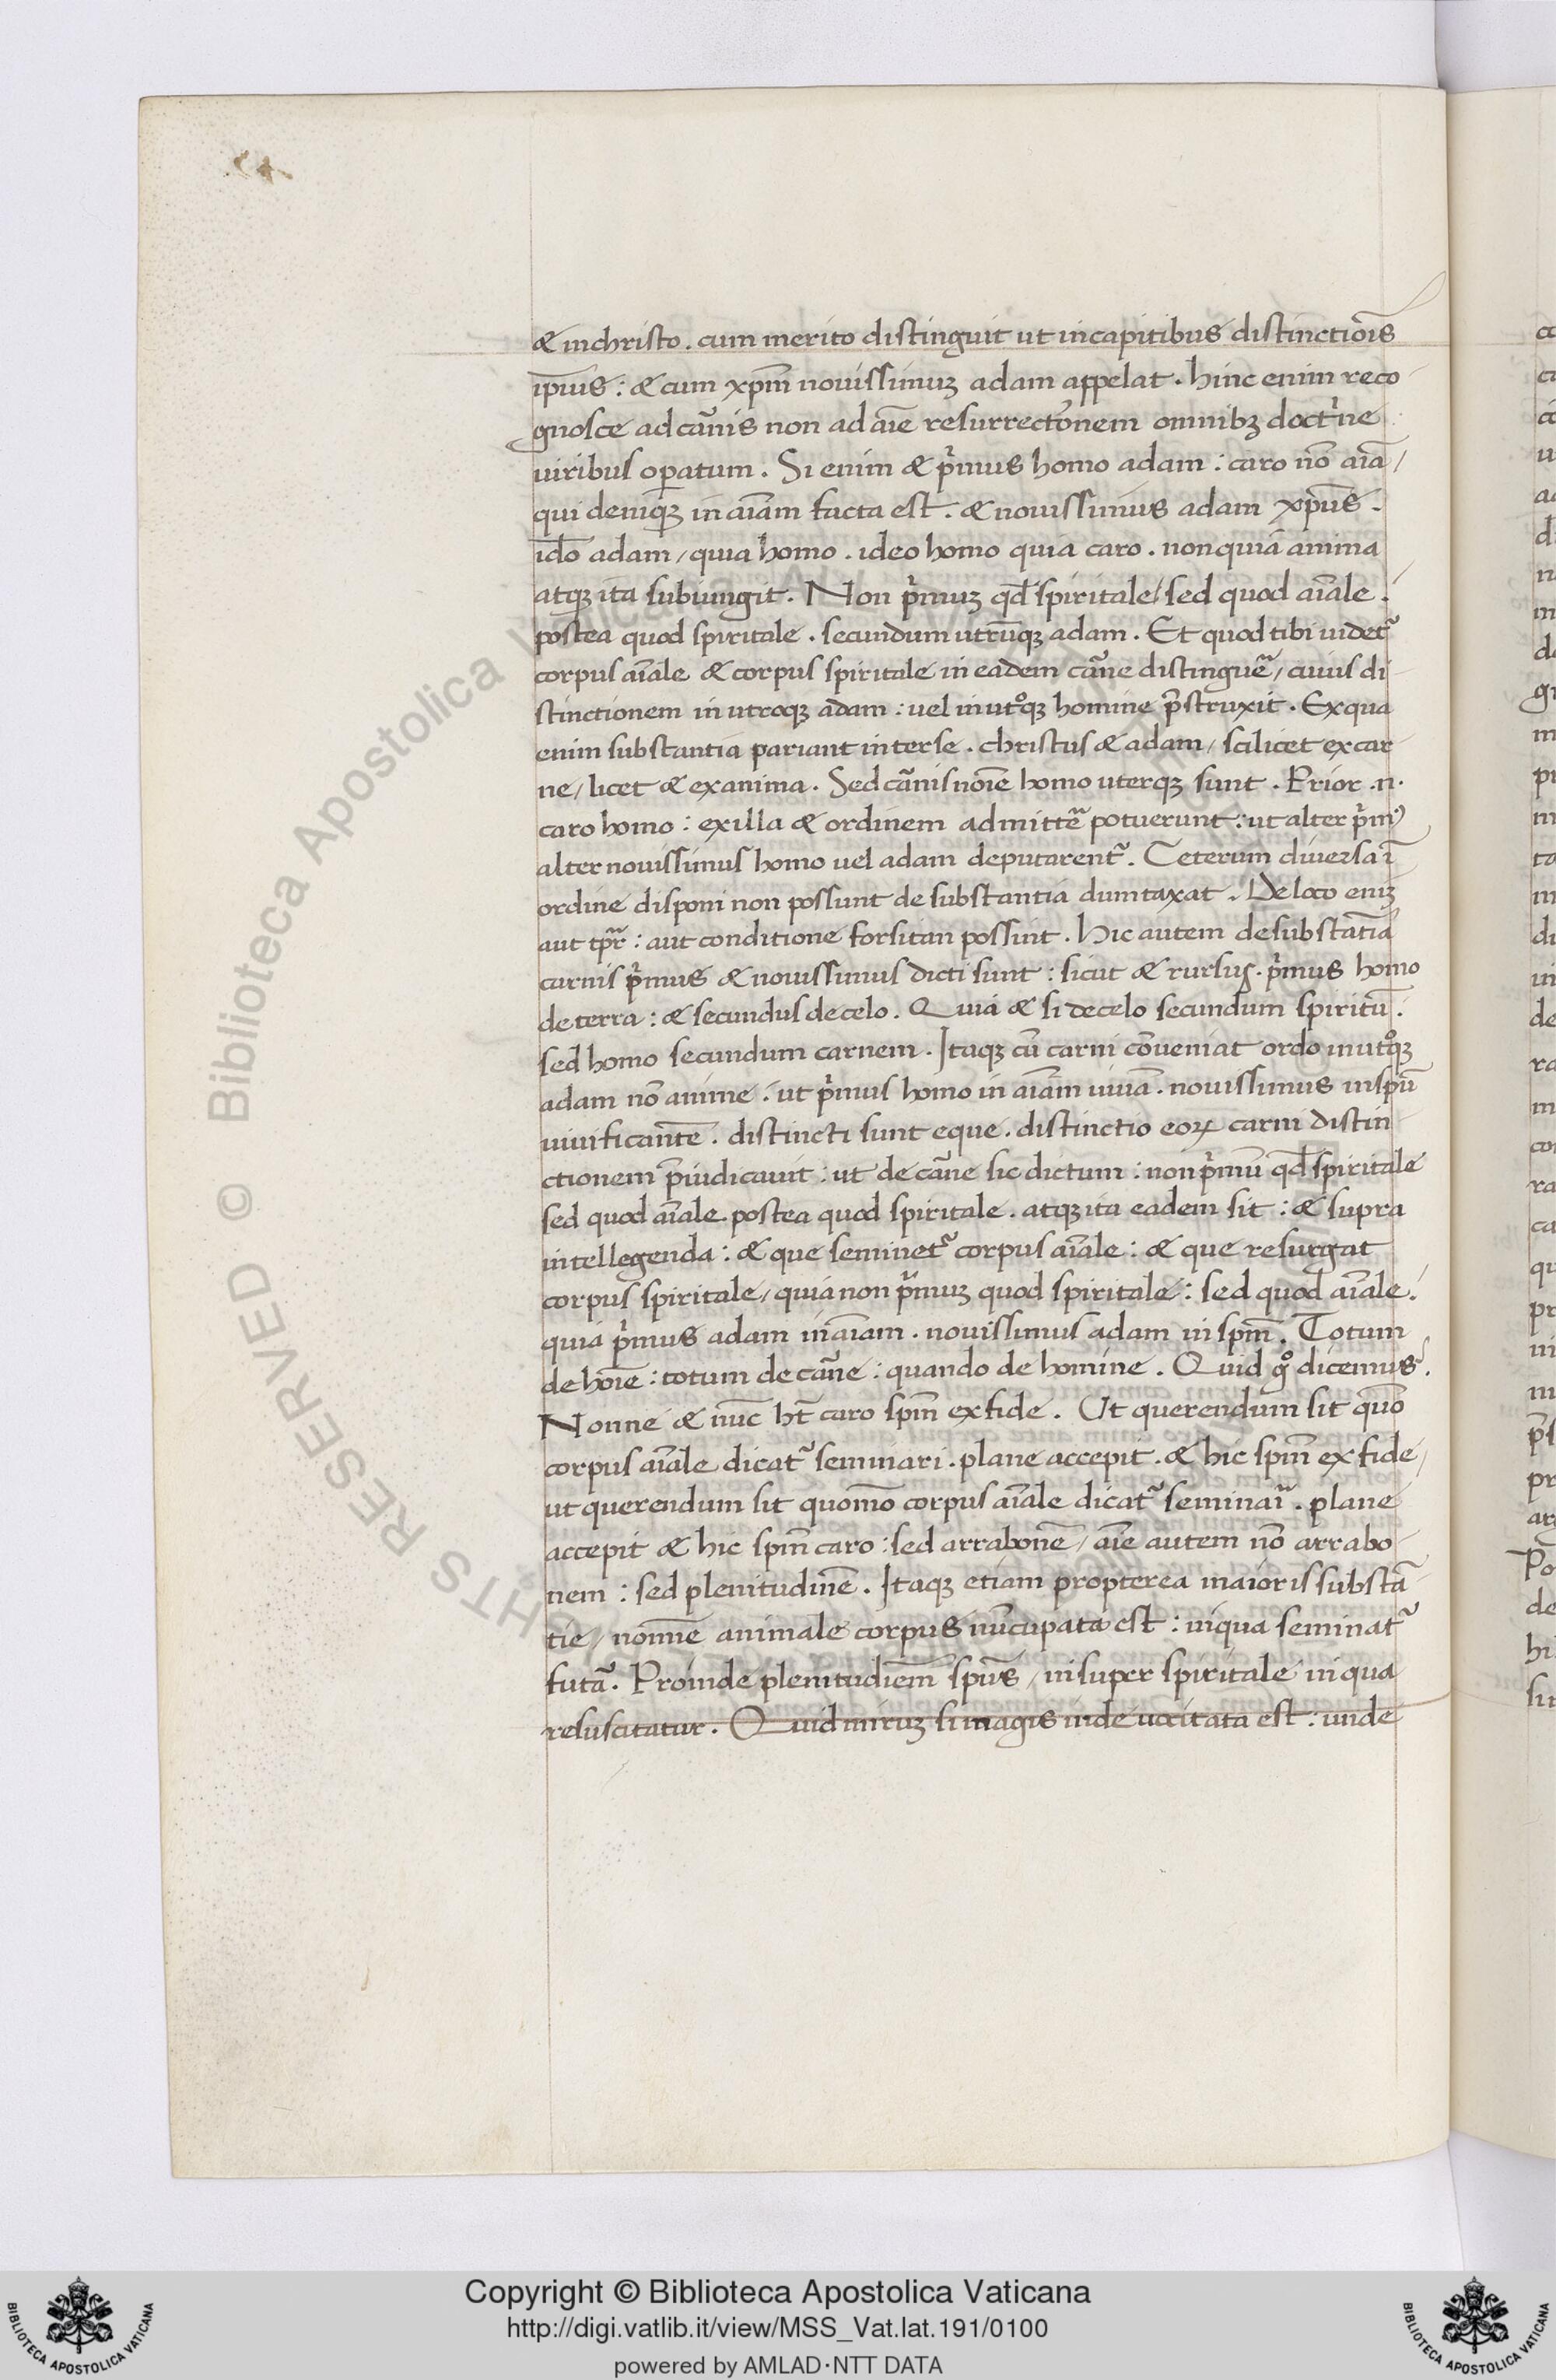 & in christo . cum merito distinguit ut in capitibus distinctiōis
ip̄ius : & cum xp̄m nouissimuꝫ adam appelat . hinc enim reco
gnosce ad cārnis non ad aīe resurrectōnem omnibꝫ doctͥne
uiribus op̄atum . Si enim & pͥmus homo adam : caro nō aīa /
qui deniqꝫ in aīam facta est . & nouissimus adam xp̄us .
id̄o adam / quia homo . ideo homo quia caro . non quia anima
atqꝫ ita subiungit . Non pͥmuꝫ qd̄ spiritale / sed quod aīale .
postea quod spiritale . secundum utrūqꝫ adam . Et quod tibi uidet᷑
corpus aīale & corpus spiritale in eadem cāne distinguē / cuius di
stinctionem in utroqꝫ adam : uel in utͦqꝫ homine p̄struxit . Ex qua
enim substantia pariant inter se . christus & adam / scilicet ex car
ne / licet & ex anima . Sed cānis noīe homo uterqꝫ sunt . Prior .n.
caro homo : ex illa & ordinem admittē potuerunt : ut alter pͥmꝰ
alter nouissimus homo uel adam deputarent᷑ . Ceterum diuersa ī
ordine disponi non possunt de substantia dumtaxat . De loco eniꝫ
aut tp̄r : aut conditione forsitan possint . Hic autem de substātia
carnis pͥmus & nouissimus dicti sunt : sicut & rursus . pͥmus homo
de terra : & secundus de celo . Quia & si de celo secundum spiritū .
sed homo secundum carnem . Itaqꝫ cū carni cōueniat ordo in utͦqꝫ
adam nō anime : ut pͥmus homo in aīam uiuā . nouissimus in spū
uiuificantē . distincti sunt eque . distinctio eoꝝ carni distin
ctionem p̄iudicauit : ut de cāne sic dictum : non pͥmū qd̄ spiritale
sed quod aīale . postea quod spiritale . atqꝫ ita eadem sit : & supra
intellegenda : & que seminet᷑ corpus aīale : & que resurgat
corpus spiritale / quia non pͥmuꝫ quod spiritale : sed quod aīale .
quia pͥmus adam in aīam . nouissimus adam in spm̄ . Totum
de hoīe : totum de cāne : quando de homine . Quid gͦ dicemus .
Nonne & nūc ht̄ caro spm̄ ex fide . Ut querendum sit quō
corpus aīale dicat᷑ seminari . plane accepit . & hic spm̄ ex fide /
ut querendum sit quomō corpus aīale dicat᷑ seminaī . plane
accepit & hic spm̄ caro : sed arrabonē / aīe autem nō arrabo
nem : sed plenitudinē . Itaqꝫ etiam propterea maioris substā
tie / nomnē animale corpus nūcupata est : in qua seminat᷑
futā . Proinde plenitudiēm spūs / insuper spiritale in qua
resuscitatur . Quid miruꝫ si magis inde uocitata est : unde
Copyright © Biblioteca Apostolica Vaticana
http://digi.vatlib.it/view/MSS_Vat.lat.191/0100
powered by AMLAD·NTT DATA